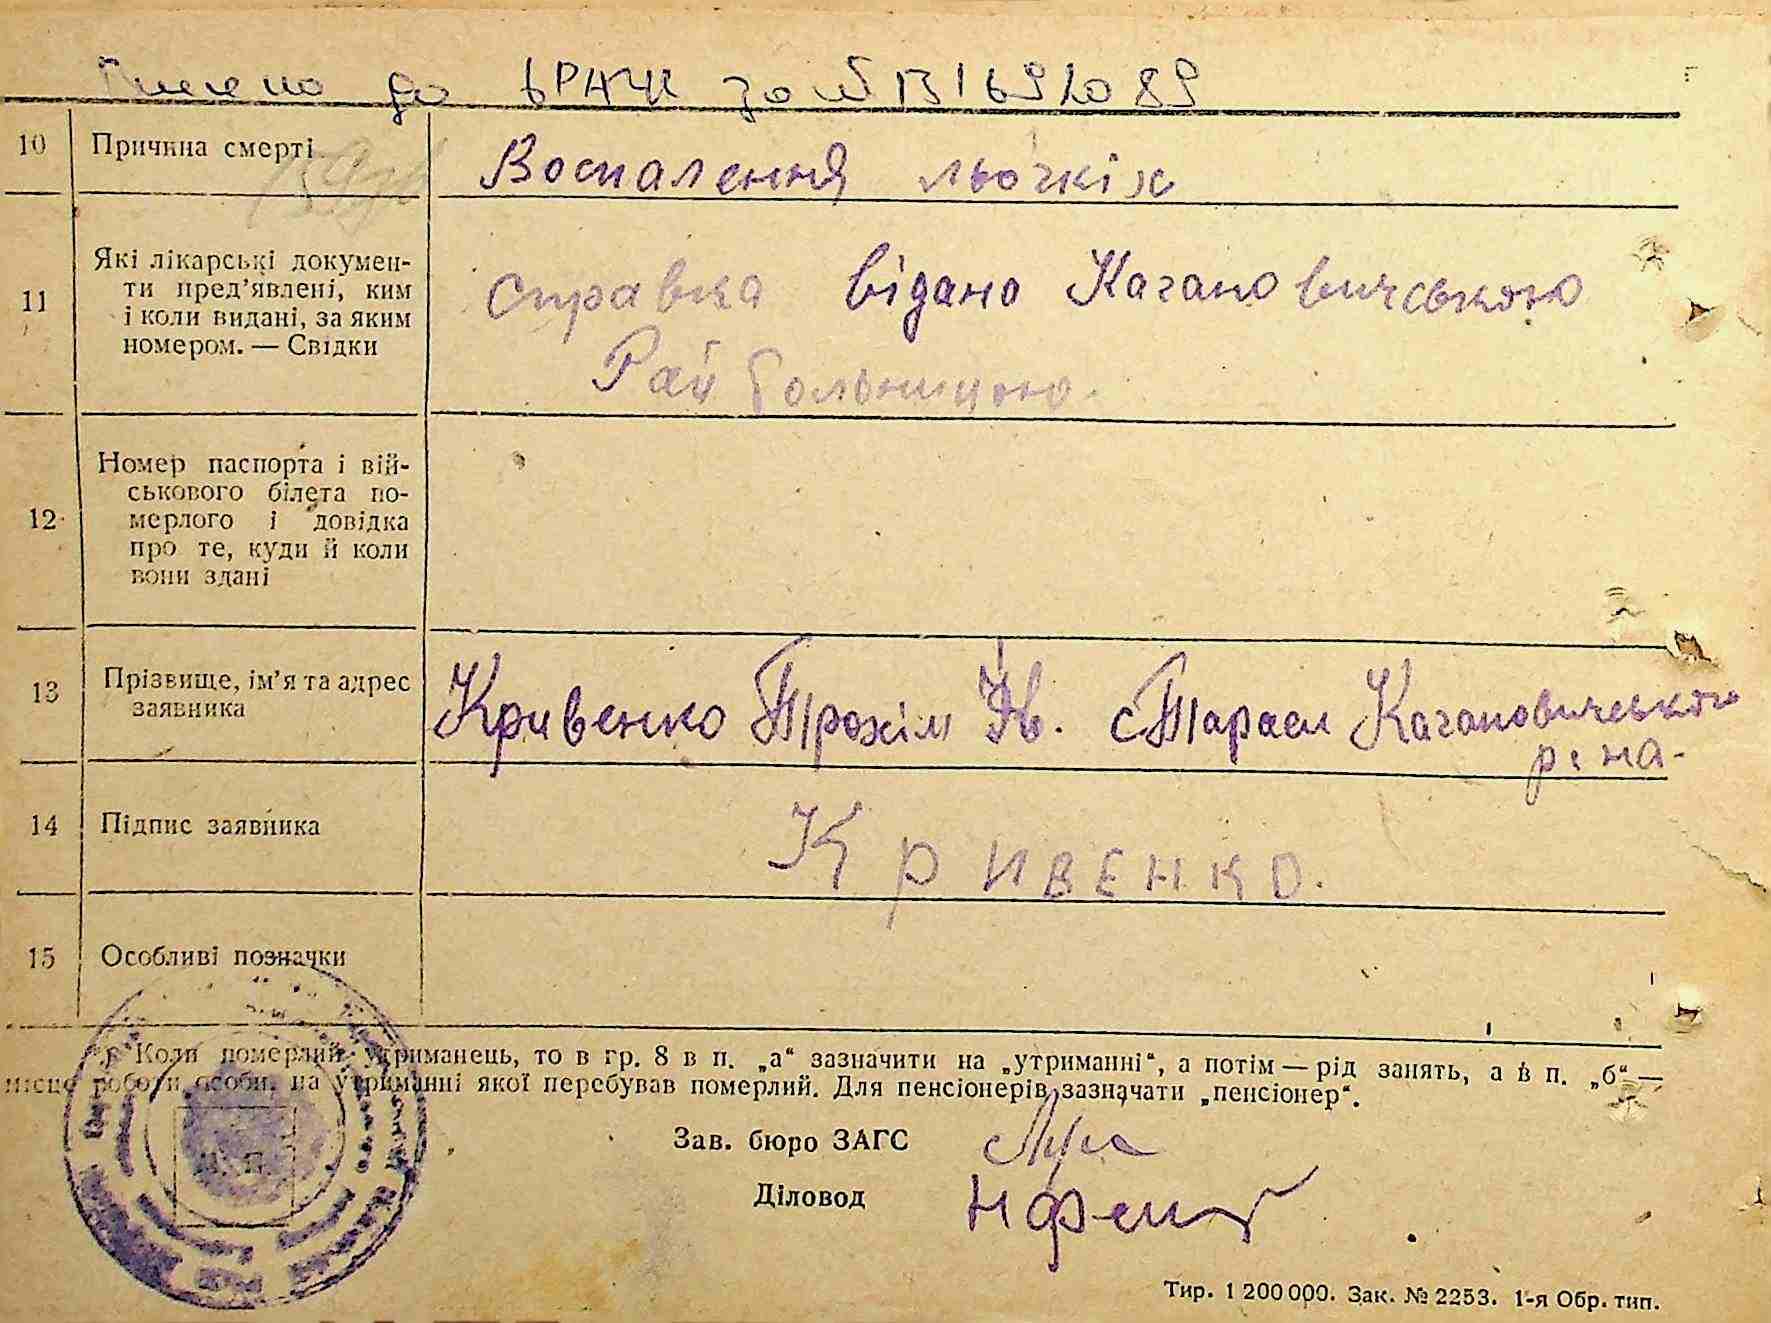 до ВРАЧУ
10 Причина смерті Воспалення льочкіх
11 Які лікарські документи пред'явлені, ким і коли видані, за яким номером. — Свідки
справка відано Кагановичською
Рай больницою.
12 Номер паспорта і військового білета померлого і довідка про те, куди й коли вони здані
13 Прізвище, ім'я та адрес заявника
Кривенко Трохім Ів. с Тараси Кагановичського
р-на.
14 Підпис заявника Кривенко.
15 Особливі позначки
Коли померлий утриманець, то в гр. 8 в п. „а“ зазначити на „утриманні“, а потім — рід занять, а в п. „б“ —
місце роботи особи, на утриманні якої перебував померлий. Для пенсіонерів зазначати „пенсіонер“.
Зав. бюро ЗАГС
Діловод
М. П.
Тир. 1 200 000. Зак. № 2253. 1-я Обр. тип.